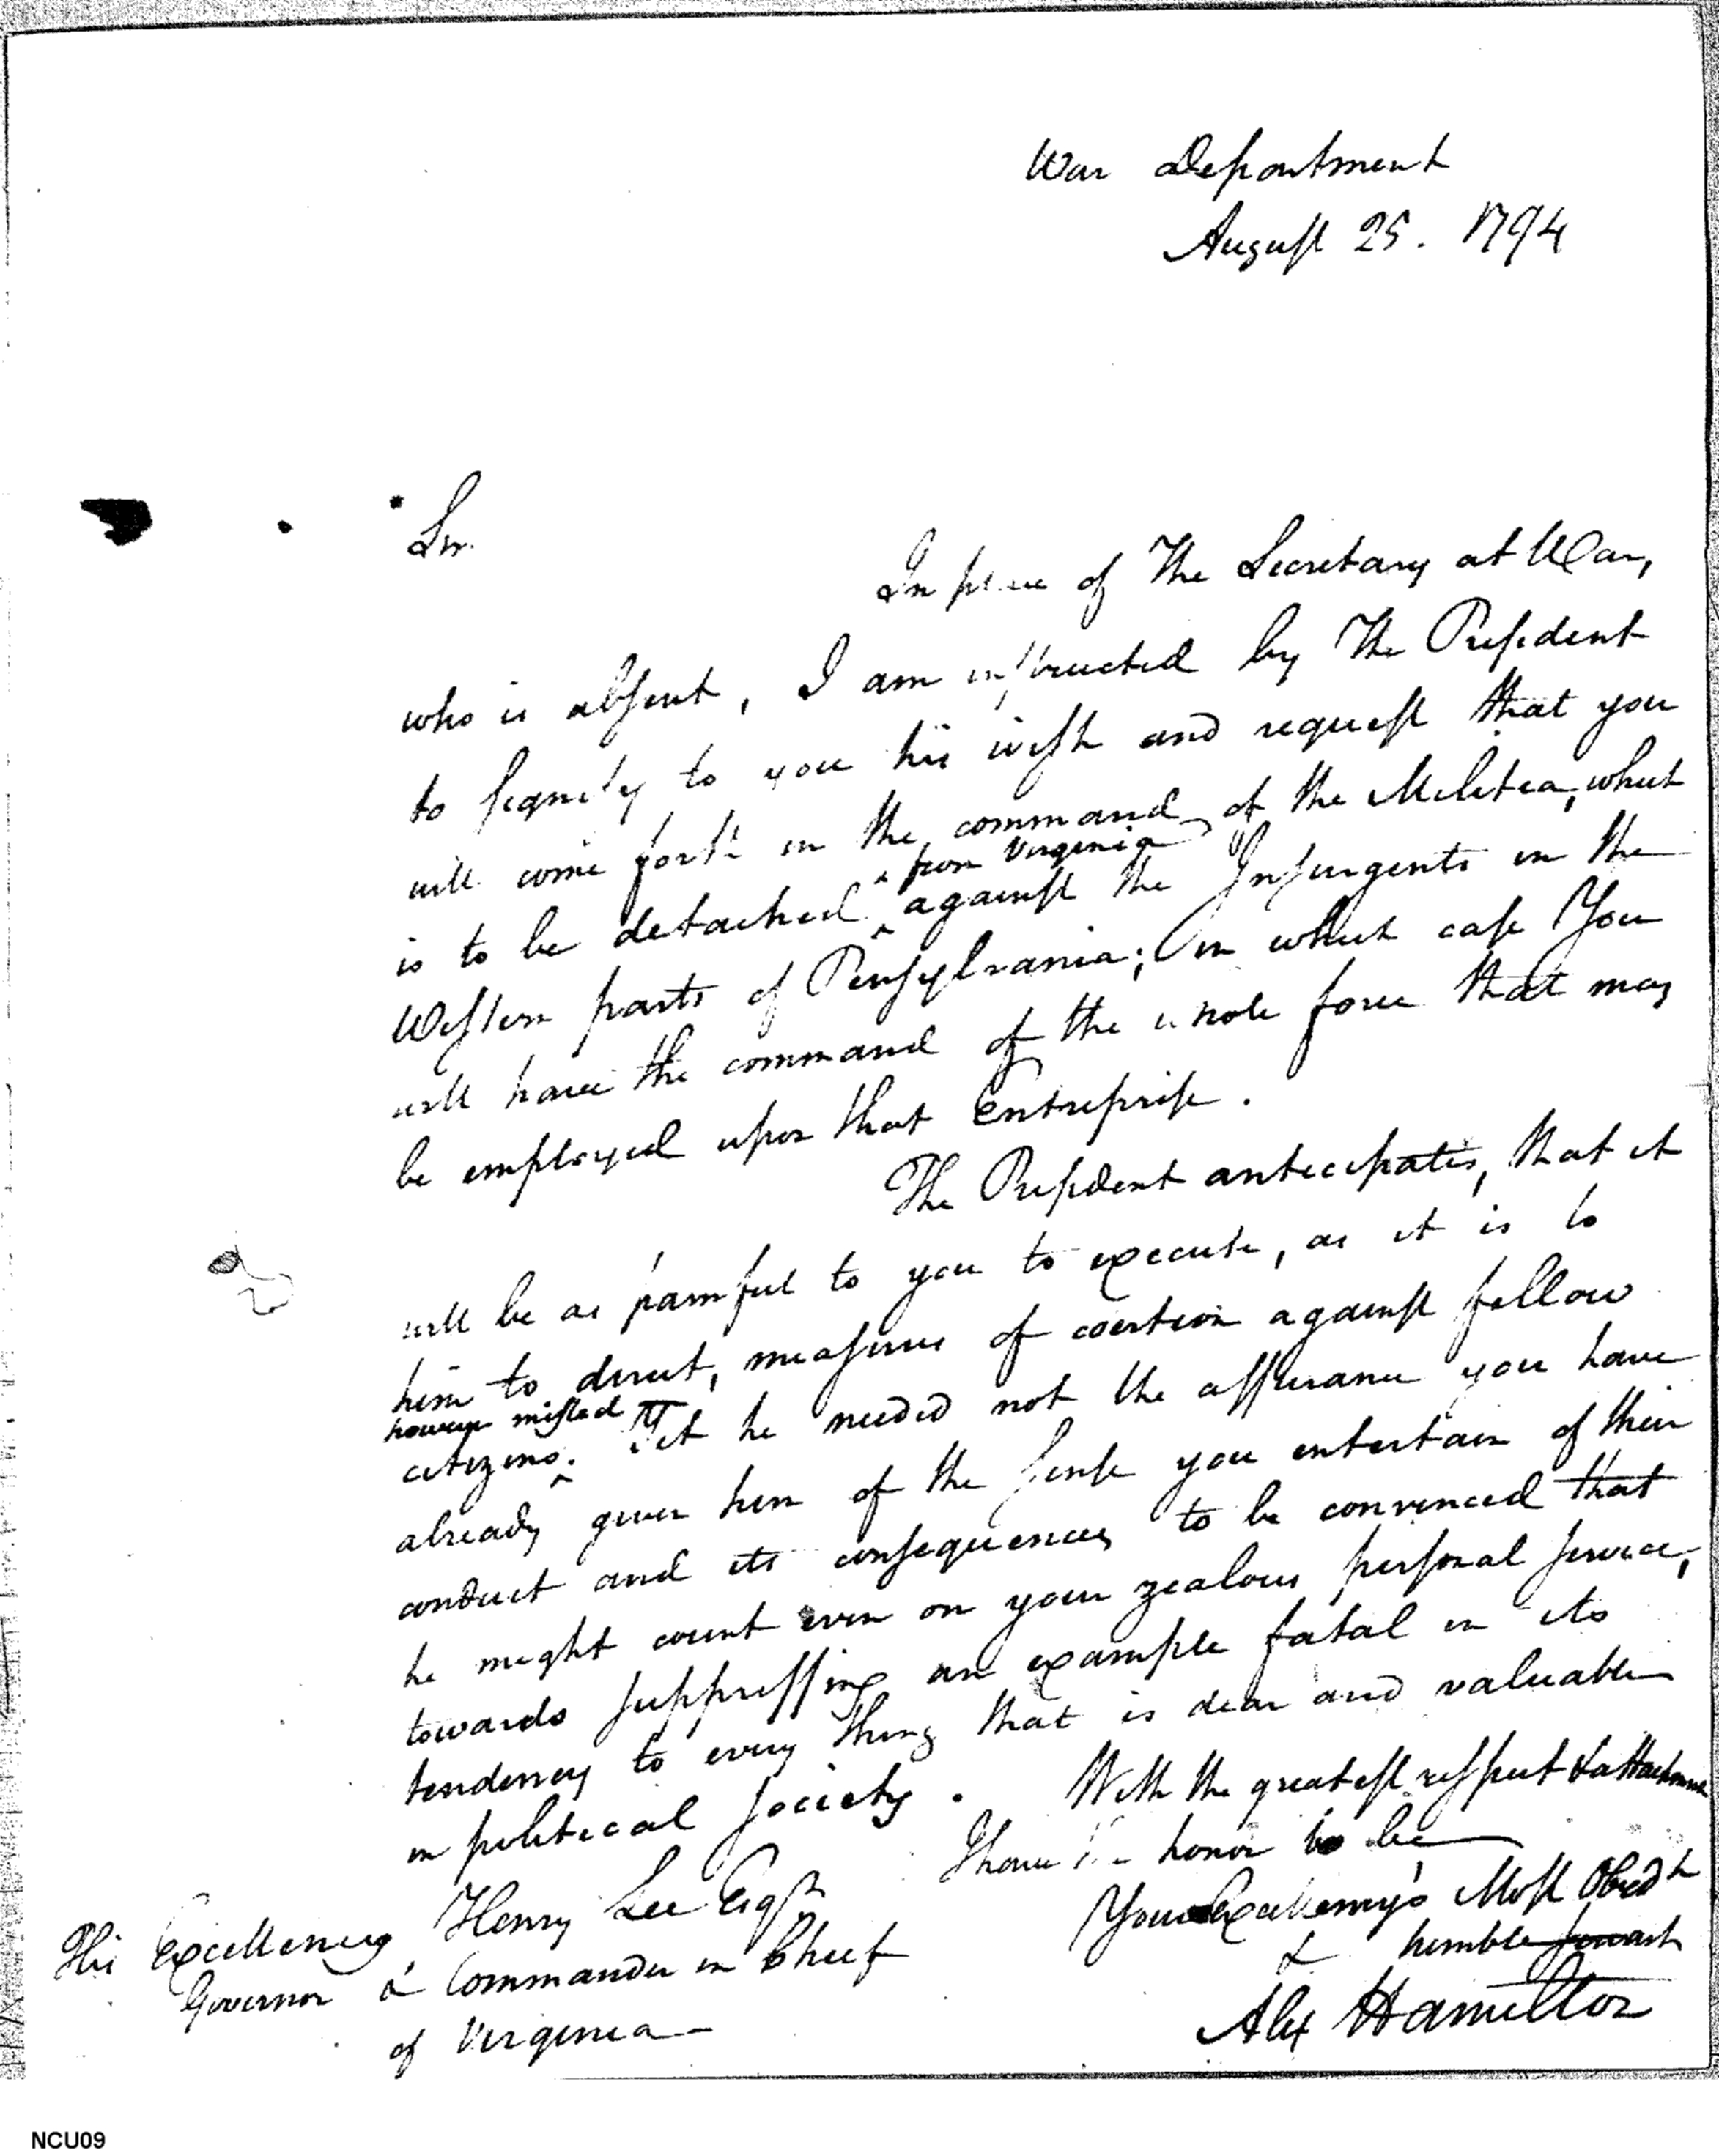 War Department
August 25. 1794
Sir
In place of The Secretary at War,
who is absent, I am instructed by The President
to signify to you his wish and request that you
will come forth in the command of the Militia, which
from Virginia
is to be detached ^ against the Insurgents in the
Western parts of Pensylvania; in which case You
will have the command of the whole force that may
be employed upon that Entreprise.
The President anticipates, that it
will be as painful to you to execute, as it is to
him to direct, measures of coertion against fellow
however misled
citizens ^. Yet he needed not the assurance you have
already given him of the sense you entertain of their
conduct and its consequences to be convinced that
he might count even on your zealous personal service,
towards suppressing an example fatal in its
tendency to every thing that is dear and valuable
in political society. With the greatest respect & attachment
I have the honor to be
Your Excellency's Most Obedt
& humble servant
Alex Hamilton
His Excellency Henry Lee Esqr
Governor & Commander in Chief
of Virginia—
NCU09